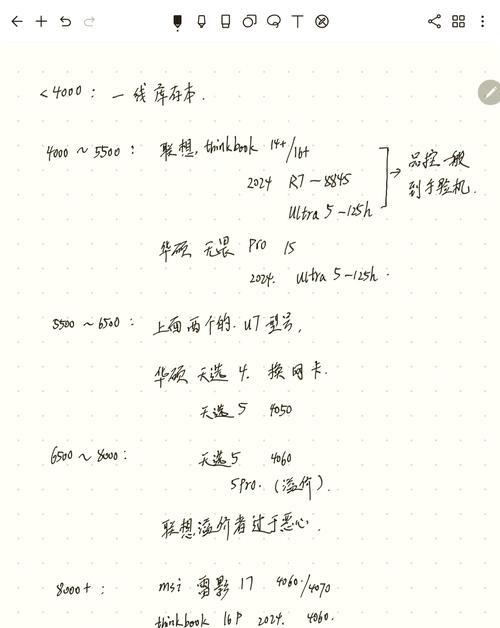 <4000: 一线库存本.
4000~5500: 联想. thinkbook 14+/16+
2024 R7-8845
Ultra 5-125h
品控一般
到手验机.
华硕 无畏 Pro 15
2024. Ultra 5-125h.
5500~6500: 上面两个的. U7型号,
华硕 天选 4. 换网卡.
天选5 4050
6500~8000: 天选5 4060
5Pro. (溢价).
联想溢价者过于恶心.
8000+: msi 雷影 17 4060/4070
thinkbook 16P 2024. 4060.